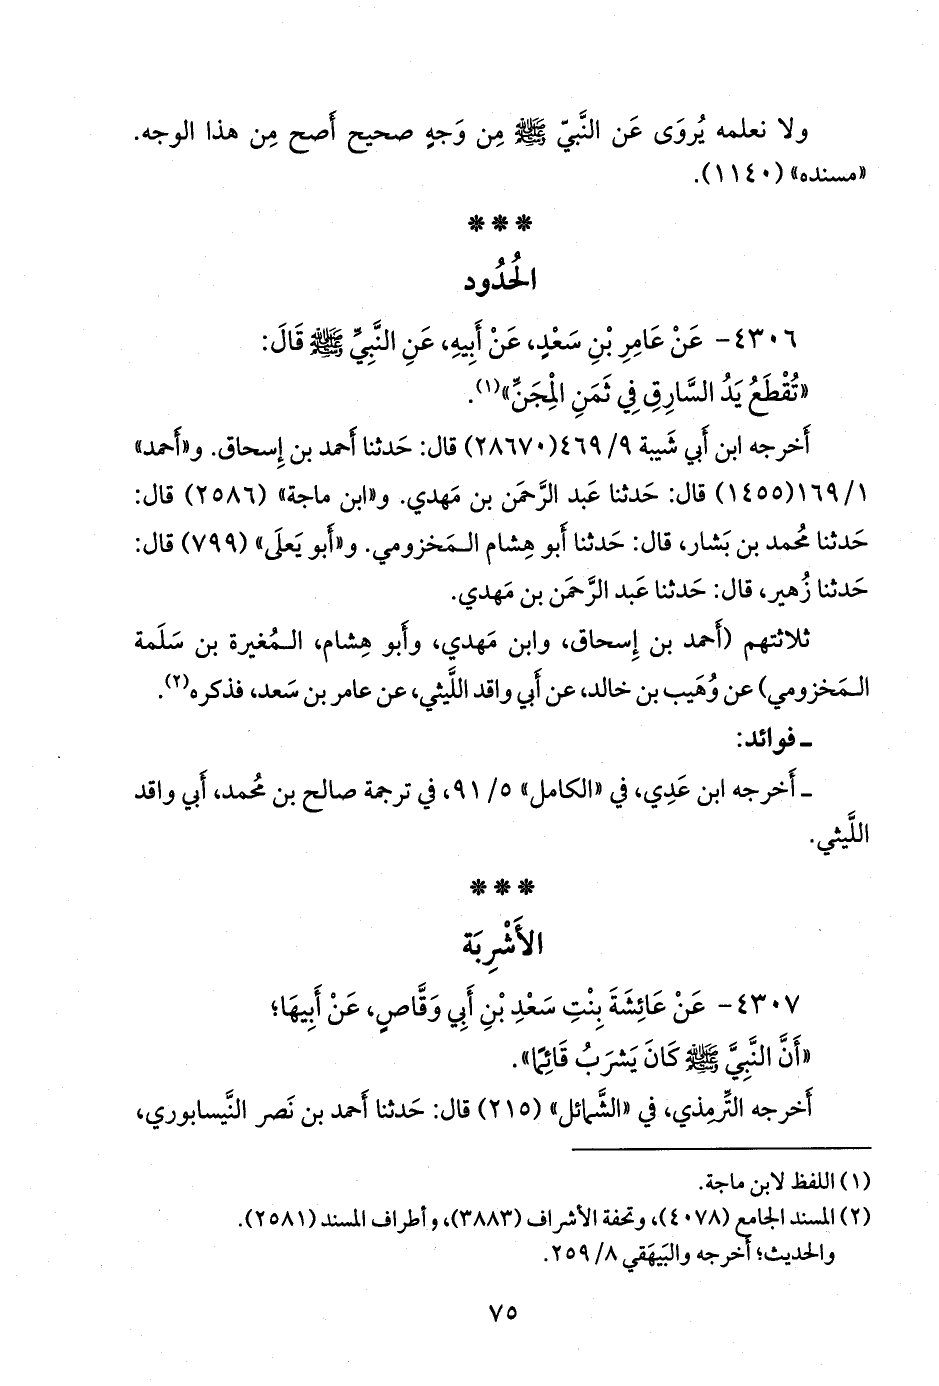 ولا نعلمه يُروَى عَن النَّبيّ ﷺ مِن وَجهٍ صحيح أَصح مِن هذا الوجه.
«مسنده» (١١٤٠).
***
الحُدُود
٤٣٠٦- عَنْ عَامِرِ بْنِ سَعْدٍ، عَنْ أَبِيهِ، عَنِ النَّبِيِّ ﷺ قَالَ:
«تُقْطَعُ يَدُ السَّارِقِ فِي ثَمَنِ الْمِجَنِّ»(١).
أَخرجه ابن أَبي شَيبة ٩/ ٤٦٩(٢٨٦٧٠) قال: حَدثنا أَحمد بن إِسحاق. و«أَحمد»
١/ ١٦٩(١٤٥٥) قال: حَدثنا عَبد الرَّحمَن بن مَهدي. و«ابن ماجة» (٢٥٨٦) قال:
حَدثنا مُحمد بن بَشار، قال: حَدثنا أَبو هِشام الـمَخزومي. و«أَبو يَعلَى» (٧٩٩) قال:
حَدثنا زُهير، قال: حَدثنا عَبد الرَّحمَن بن مَهدي.
ثلاثتهم (أَحمد بن إِسحاق، وابن مَهدي، وأَبو هِشام، الـمُغيرة بن سَلَمة
الـمَخزومي) عن وُهَيب بن خالد، عن أَبي واقد اللَّيثي، عن عامر بن سَعد، فذكره(٢).
ـ فوائد:
ـ أَخرجه ابن عَدِي، في «الكامل» ٥/ ٩١، في ترجمة صالح بن مُحمد، أَبي واقد
اللَّيثي.
***
الأَشْرِبَة
٤٣٠٧- عَنْ عَائِشَةَ بِنْتِ سَعْدِ بْنِ أَبِي وَقَّاصٍ، عَنْ أَبِيهَا؛
«أَنَّ النَّبِيَّ ﷺ كَانَ يَشرَبُ قَائِمًا».
أَخرجه التِّرمِذي، في «الشَّمائل» (٢١٥) قال: حَدثنا أَحمد بن نَصر النَّيسابوري،
(١) اللفظ لابن ماجة.
(٢) المسند الجامع (٤٠٧٨)، وتحفة الأشراف (٣٨٨٣)، وأطراف المسند (٢٥٨١).
والحديث؛ أَخرجه والبَيهَقي ٨/ ٢٥٩.
٧٥